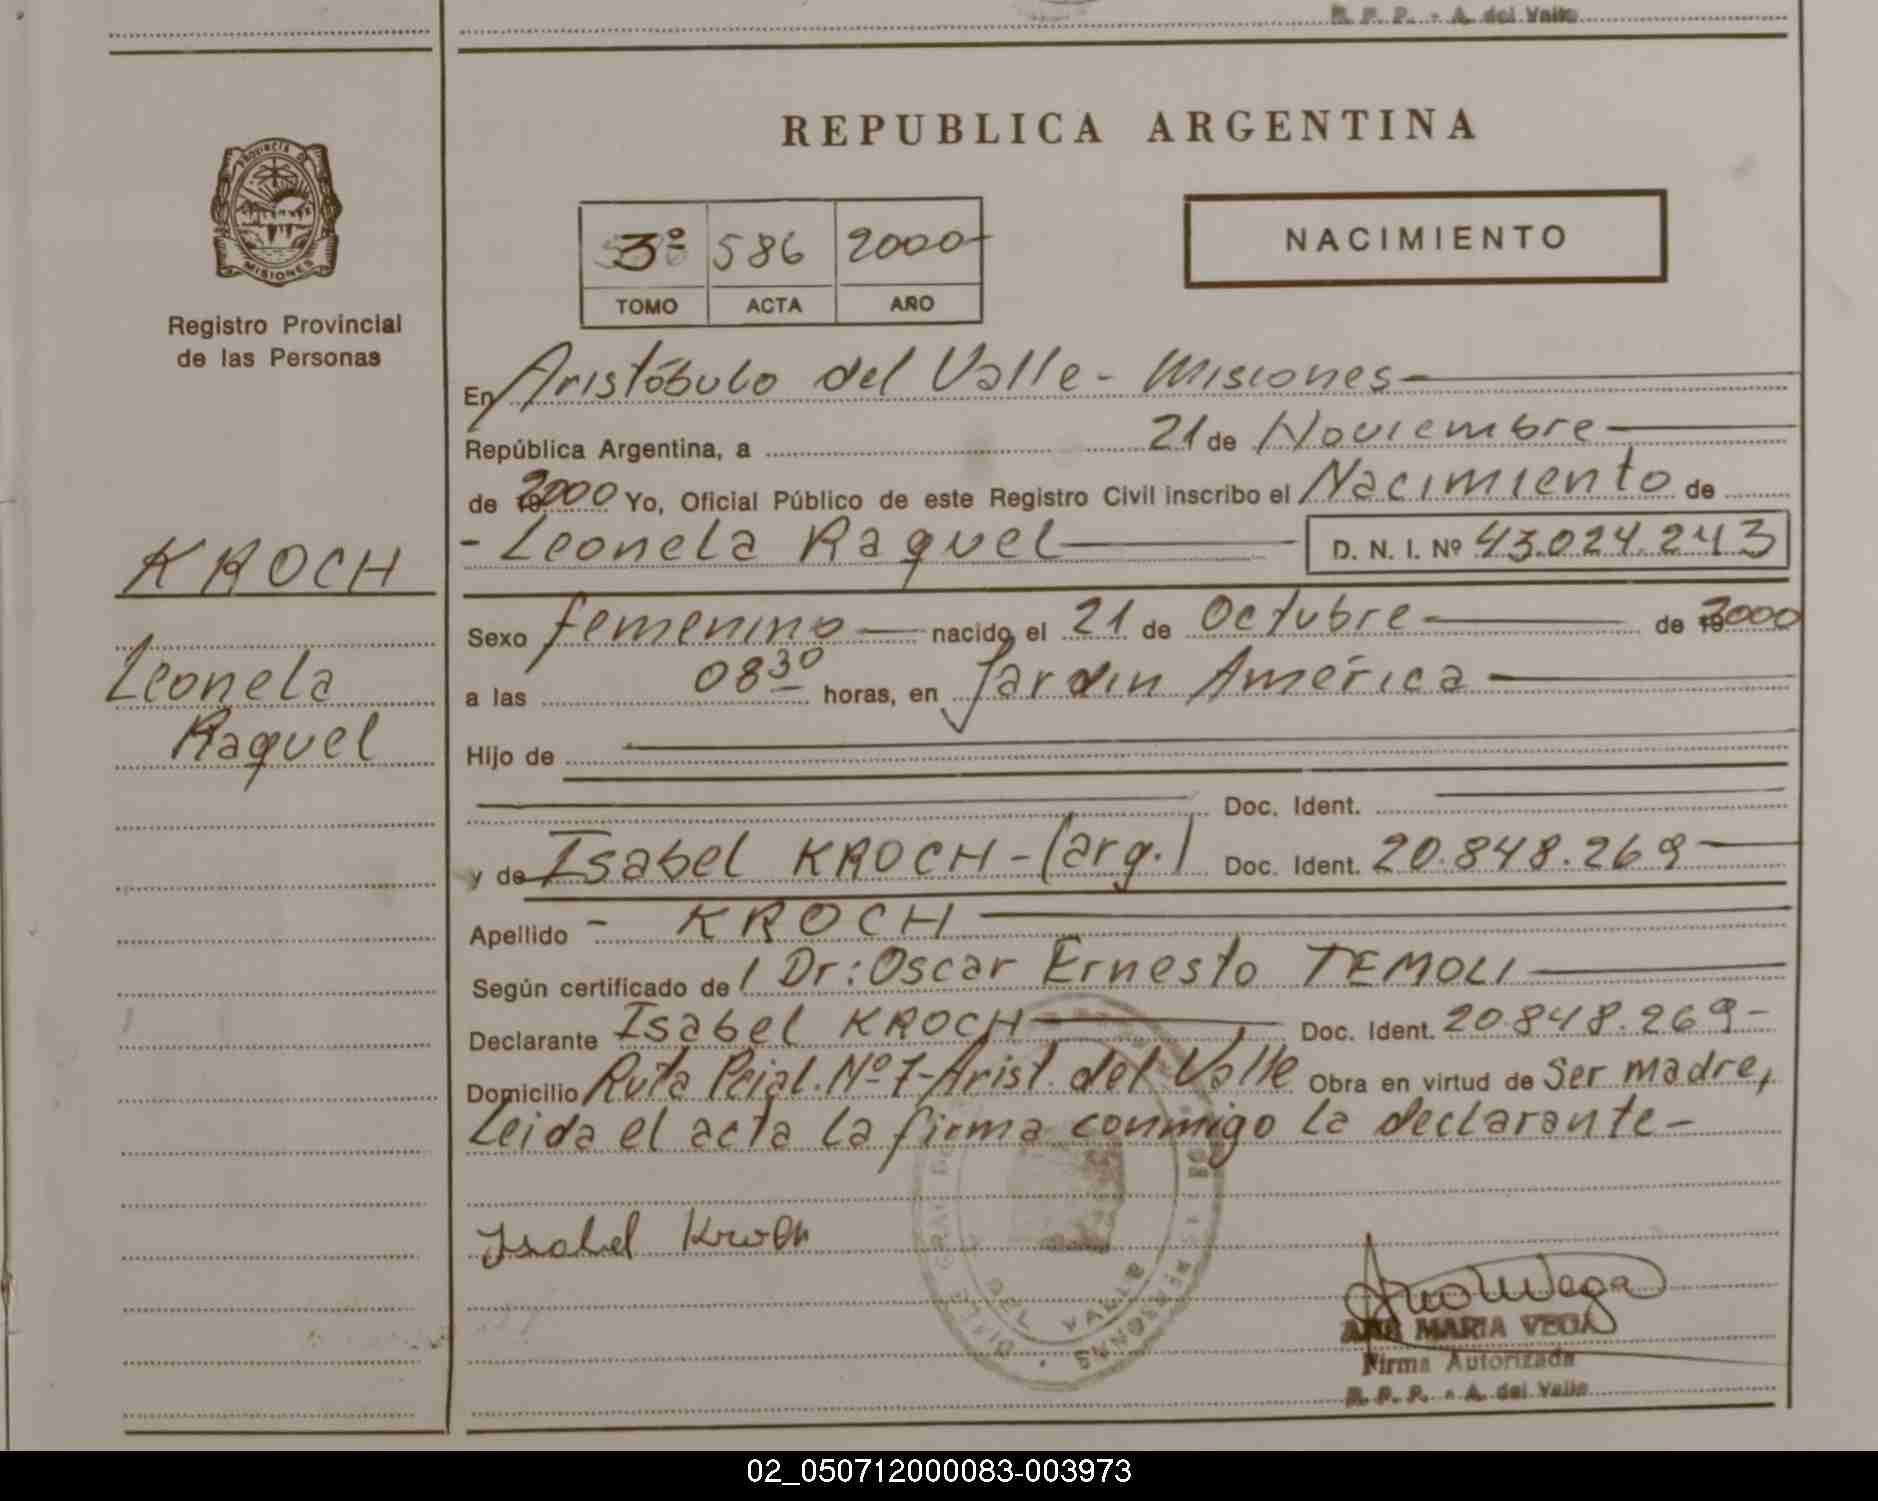 R. P. P. - A. del Valle
REPUBLICA ARGENTINA
PROVINCIA DE
MISIONES
Registro Provincial
de las Personas
3º 586 2000
TOMO ACTA AÑO
NACIMIENTO
En Aristóbulo del Valle - Misiones
República Argentina, a 21 de Noviembre
de 2000 Yo, Oficial Público de este Registro Civil inscribo el Nacimiento de
- Leonela Raquel D. N. I. Nº 43.024.243
KROCH
Leonela
Raquel
Sexo femenino nacido el 21 de Octubre de 2000
a las 08 30 horas, en Jardin América
Hijo de
Doc. Ident.
y de Isabel KROCH - (arg.) Doc. Ident. 20.848.269
Apellido - KROCH
Según certificado de Dr: Oscar Ernesto TEMOLI
Declarante Isabel KROCH Doc. Ident. 20.848.269 -
Domicilio Ruta Pcial. Nº 7 - Arist. del Valle Obra en virtud de Ser madre,
Leida el acta la firma conmigo la declarante -
Isabel Kroch
DEL VALLE
PERSONAS
ANA MARIA VEGA
Firma Autorizada
R. P. P. - A. del Valle
02_050712000083-003973